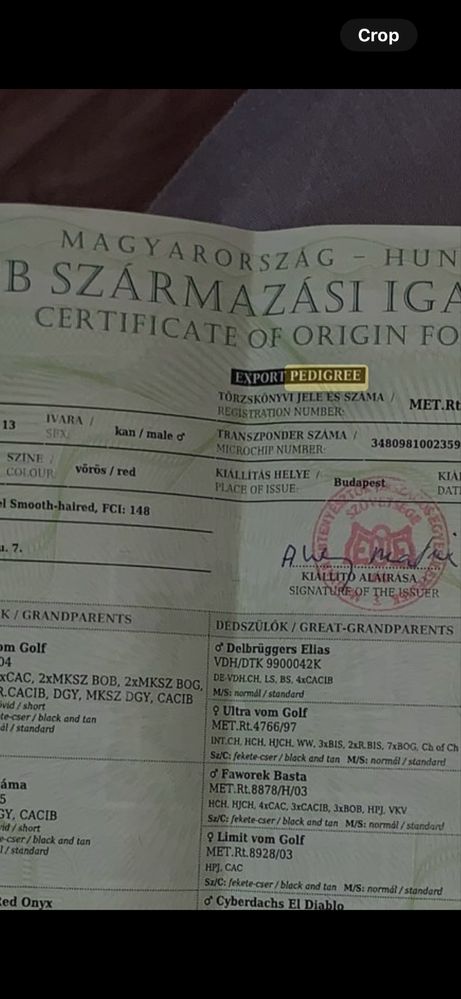 Crop
MAGYARORSZÁG – HUN
B SZÁRMAZÁSI IGA
CERTIFICATE OF ORIGIN FO
EXPORT PEDIGREE
TÖRZSKÖNYVI JELE ÉS SZÁMA /
REGISTRATION NUMBER:
MET.Rt
13
IVARA /
SEX:
kan / male ♂
TRANSZPONDER SZÁMA /
MICROCHIP NUMBER:
3480981002359
SZÍNE /
COLOUR:
vörös / red
KIÁLLÍTÁS HELYE /
PLACE OF ISSUE:
Budapest
KIÁ
DAT
el Smooth-haired, FCI: 148
u. 7.
KIÁLLÍTÓ ALÁÍRÁSA
SIGNATURE OF THE ISSUER
K / GRANDPARENTS
DÉDSZÜLŐK / GREAT-GRANDPARENTS
om Golf
04
xCAC, 2xMKSZ BOB, 2xMKSZ BOG,
R.CACIB, DGY, MKSZ DGY, CACIB
övid / short
te-cser / black and tan
ál / standard
♂ Delbrüggers Elias
VDH/DTK 9900042K
DE-VDH.CH, LS, BS, 4xCACIB
M/S: normál / standard
♀ Ultra vom Golf
MET.Rt.4766/97
INT.CH, HCH, HJCH, WW, 3xBIS, 2xR.BIS, 7xBOG, Ch of Ch
Sz/C: fekete-cser / black and tan M/S: normál / standard
áma
5
GY, CACIB
vid / short
e-cser / black and tan
l / standard
♂ Faworek Basta
MET.Rt.8878/H/03
HCH, HJCH, 4xCAC, 3xCACIB, 3xBOB, HPJ, VKV
Sz/C: fekete-cser / black and tan M/S: normál / standard
♀ Limit vom Golf
MET.Rt.8928/03
HPJ, CAC
Sz/C: fekete-cser / black and tan M/S: normál / standard
Red Onyx
♂ Cyberdachs El Diablo